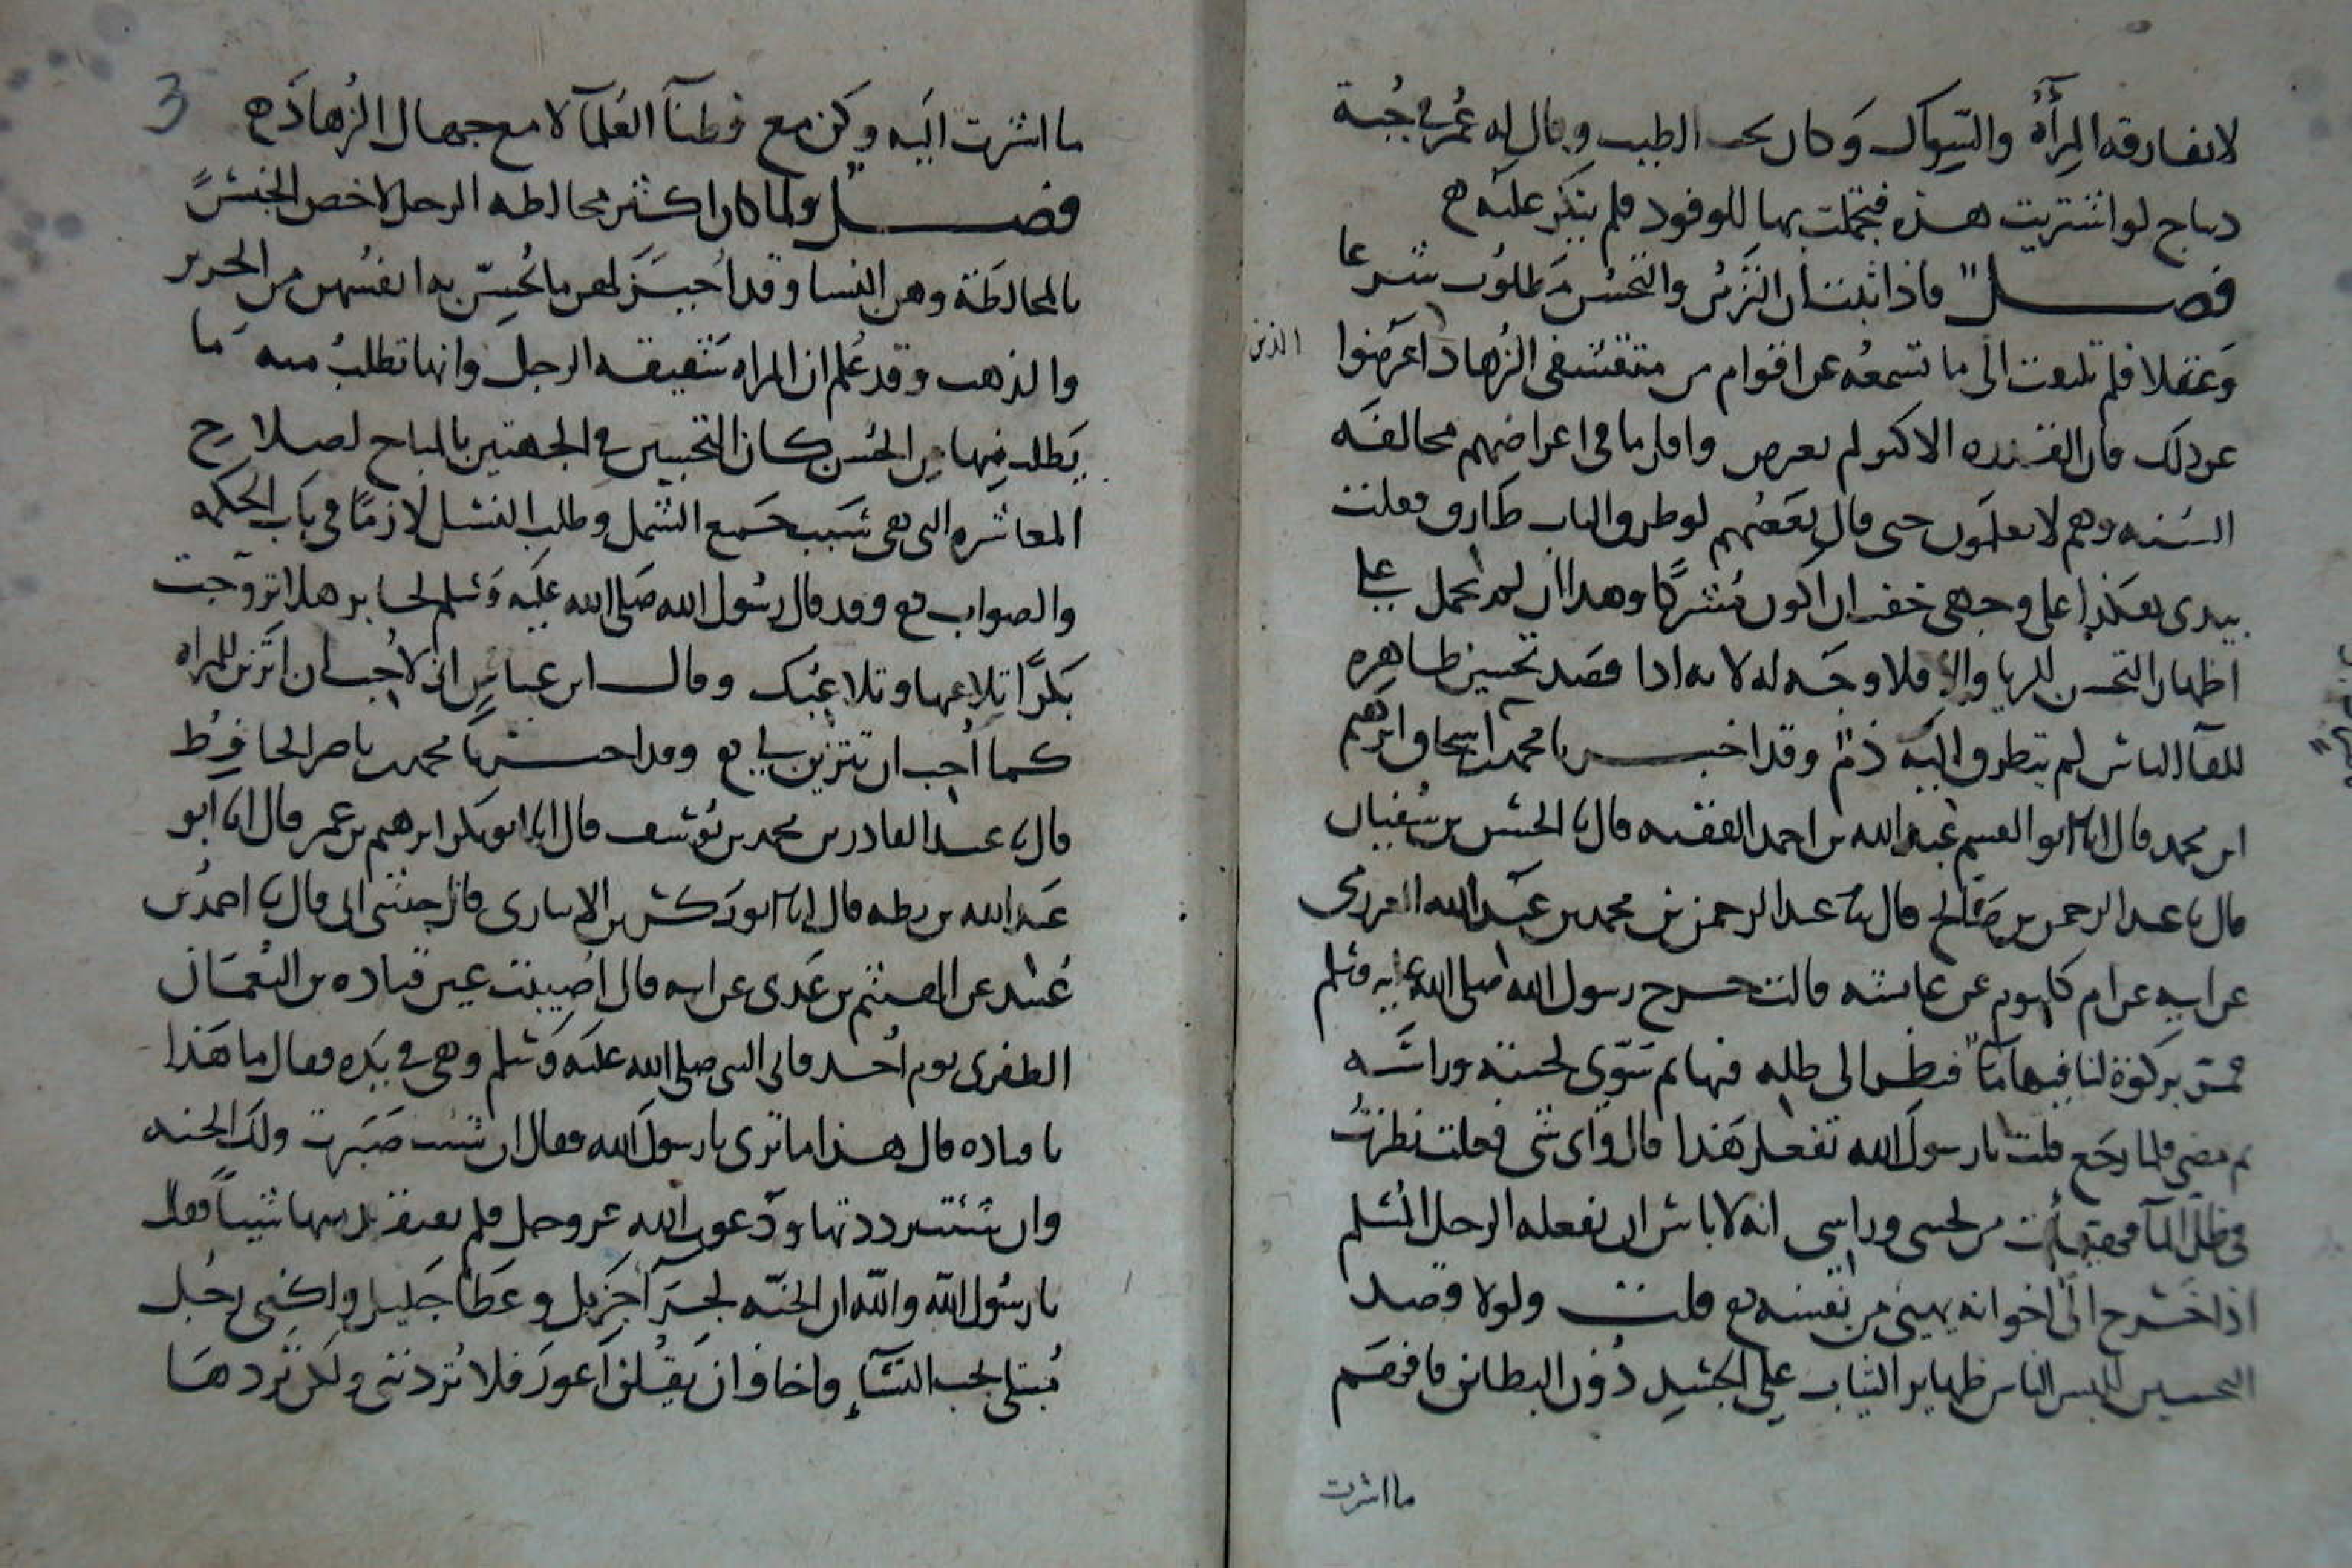 لا تفارقه المرأة والسواك وكان يحب الطيب وقال له عمر في جبة
ديباج لو اشتريت هذه فتجملت بها للوفود فلم ينكر عليه ه
فصل فإذا ثبت أن التزين والتحسن مطلوب شرعا
وعقلا فلم تلتفت الى ما تسمعه عن اقوام من متقشفى الزهاد اعرضوا
الذين
عن ذلك فان القدوه الاكبر لم يعرض واقل ما في اعراضهم مخالفه
السنه وهم لا يعلمون حتى قال بعضهم لو طرق الباب طارق فعلت
بيدى هكذا على وجهى خفت ان اكون مشركا وهذا ان لم يحمل على
اظهار التحسن للريا والا فلا وجه له لانه اذا قصد تحسين ظاهره
للقا الناس لم يتطرق اليه ذم وقد اخبرنا محمد اسحاق ابرهيم
ابن محمد قال انا ابو القسم عبد الله بن احمد الفقيه قال نا الحسن بن سفيان
قال نا عبد الرحمن بن صالح قال نا عبد الرحمن بن محمد بن عبد الله العرزمى
عن ابيه عن ام كلثوم عن عايشه قالت خرج رسول الله صلى الله عليه وسلم
فمر بركوة لنا فيها مآ فنظر الى ظله فيها ثم سوى لحيته وراسه
ثم مضى فلما رجع قلت يا رسول الله تفعل هذا قال واى شى فعلت نظرت
في ظل المآ فهيأت من لحيتى وراسى انه لا باس ان يفعله الرجل المسلم
اذا خرج الى اخوانه يهيئ من نفسه ه قلت ولولا قصد
التحسين لم يلبس الناس ظهاير الثياب على الجسد دون البطاين فافهم
ما اشرت
3
ما اشرت اليه وكن مع فطنآ العلمآ لا مع جهال الزهاد ه
فصل ولما كان اكثر مخالطه الرجل لاخص الجنس
بالمخالطة وهن النسا وقد اجيز لهن ما يحسن به انفسهن من الحرير
والذهب وقد علم ان المراه شقيقه الرجل وانها تطلب منه ما
يطلب منها من الحسن كان التحسين في الجهتين بالمباح لصلاح
المعاشره التى هى سبب جمع الشمل وطلب النسل لازما في باب الحكمه
والصواب ه وقد قال رسول الله صلى الله عليه وسلم لجابر هلا تزوجت
بكرا تلاعبها وتلاعبك وقال ابن عباس انى لاحب ان اتزين للمراه
كما احب ان تتزين لي ه وقد اخبرنا محمد بن ناصر الحافظ
قال نا عبد القادر بن محمد بن يوسف قال انا ابو بكر ابرهيم بن عمر قال انا ابو
عبد الله بن بطه قال انا ابو بكر بن الانبارى قال حدثنى ابى قال نا احمد بن
عبيد عن الهيثم بن عدى عن ابيه قال اصيبت عين قتاده بن النعمان
الظفرى يوم احد فاتى النبى صلى الله عليه وسلم وهى في يده فقال ما هذا
يا قتاده قال هذا ما ترى يا رسول الله فقال ان شئت صبرت ولك الجنه
وان شئت رددتها ودعوت الله عز وجل فلم تفقد منها شيئا فقال
يا رسول الله والله ان الجنه لجزآ جزيل وعطآ جليل ولكنى رجل
مبتلى بحب النسآء واخاف ان يقلن اعور فلا تردننى ولكن تردها